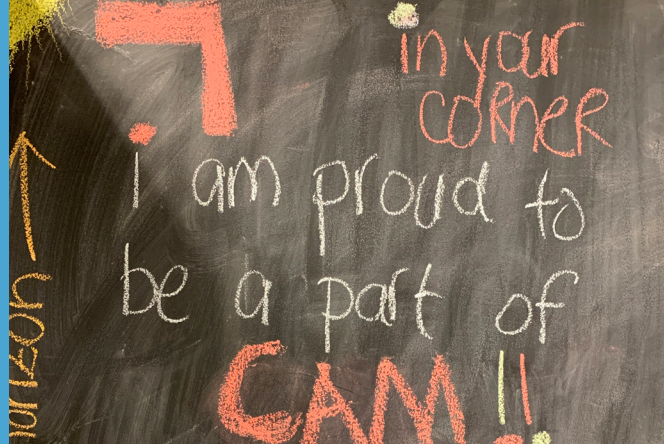 in your
CORNER
i am proud to
be a part of
CAM!!